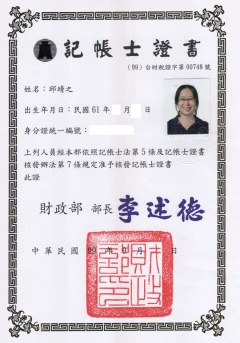 記帳士證書
(99)台財稅證字第00748號
姓名：邱靖之
出生年月日：民國61年 月 日
身分證統一編號：
上列人員經本部依照記帳士法第5條及記帳士證書
核發辦法第7條規定准予核發記帳士證書
此證
財政部 部長 李述德
中華民國 年 月 日